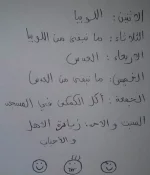 الاثنين: اللوبيا
الثلاثاء: ما تبقى من اللوبيا
الاربعاء: العدس
الخميس: ما تبقى من العدس
الجمعة: أكل الكسكس في المسجد
السبت و الاحد: زيارة الاهل
و الأحباب